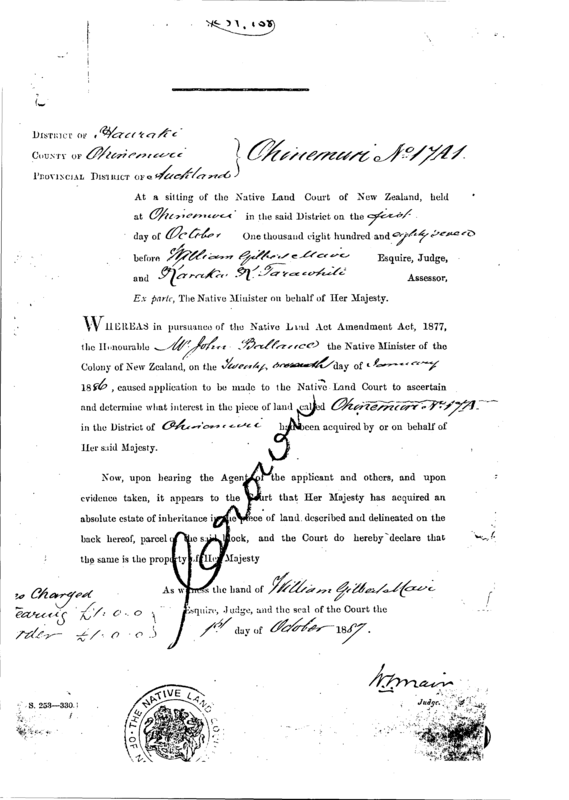 DISTRICT OF Hauraki
COUNTY OF Ohinemuri
PROVINCIAL DISTRICT OF Auckland
Ohinemuri No 17A1.
At a sitting of the Native Land Court of New Zealand, held
at Ohinemuri in the said District on the first
day of October One thousand eight hundred and eighty seven
before William Gilbert Mair Esquire, Judge,
and Karaka Tarawhiti Assessor,
Ex parte, The Native Minister on behalf of Her Majesty.
WHEREAS in pursuance of the Native Land Act Amendment Act, 1877,
the Honourable Mr John Ballance the Native Minister of the
Colony of New Zealand, on the Twenty day of January
1886, caused application to be made to the Native Land Court to ascertain
and determine what interest in the piece of land called Ohinemuri No 17A
in the District of Ohinemuri had been acquired by or on behalf of
Her said Majesty.
Now, upon hearing the Agent of the applicant and others, and upon
evidence taken, it appears to the Court that Her Majesty has acquired an
absolute estate of inheritance in the piece of land described and delineated on the
back hereof, parcel of the said block, and the Court do hereby declare that
the same is the property of Her Majesty
Crown
As witness the hand of William Gilbert Mair
Esquire, Judge, and the seal of the Court the
1st day of October 1887.
Charged
earing £1.0.0
rder £1.0.0
W G Mair
Judge.
S. 253—330.
THE NATIVE LAND COURT OF